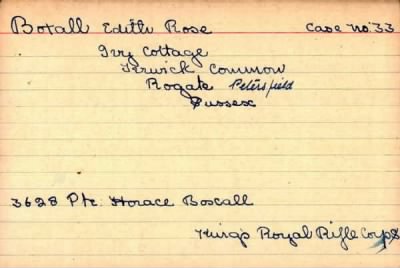 Boxall Edith Rose Case No 33
Ivy Cottage
Terwick Common
Rogate Petersfield
Sussex
3628 Pte. Horace Boxall
King's Royal Rifle Corps